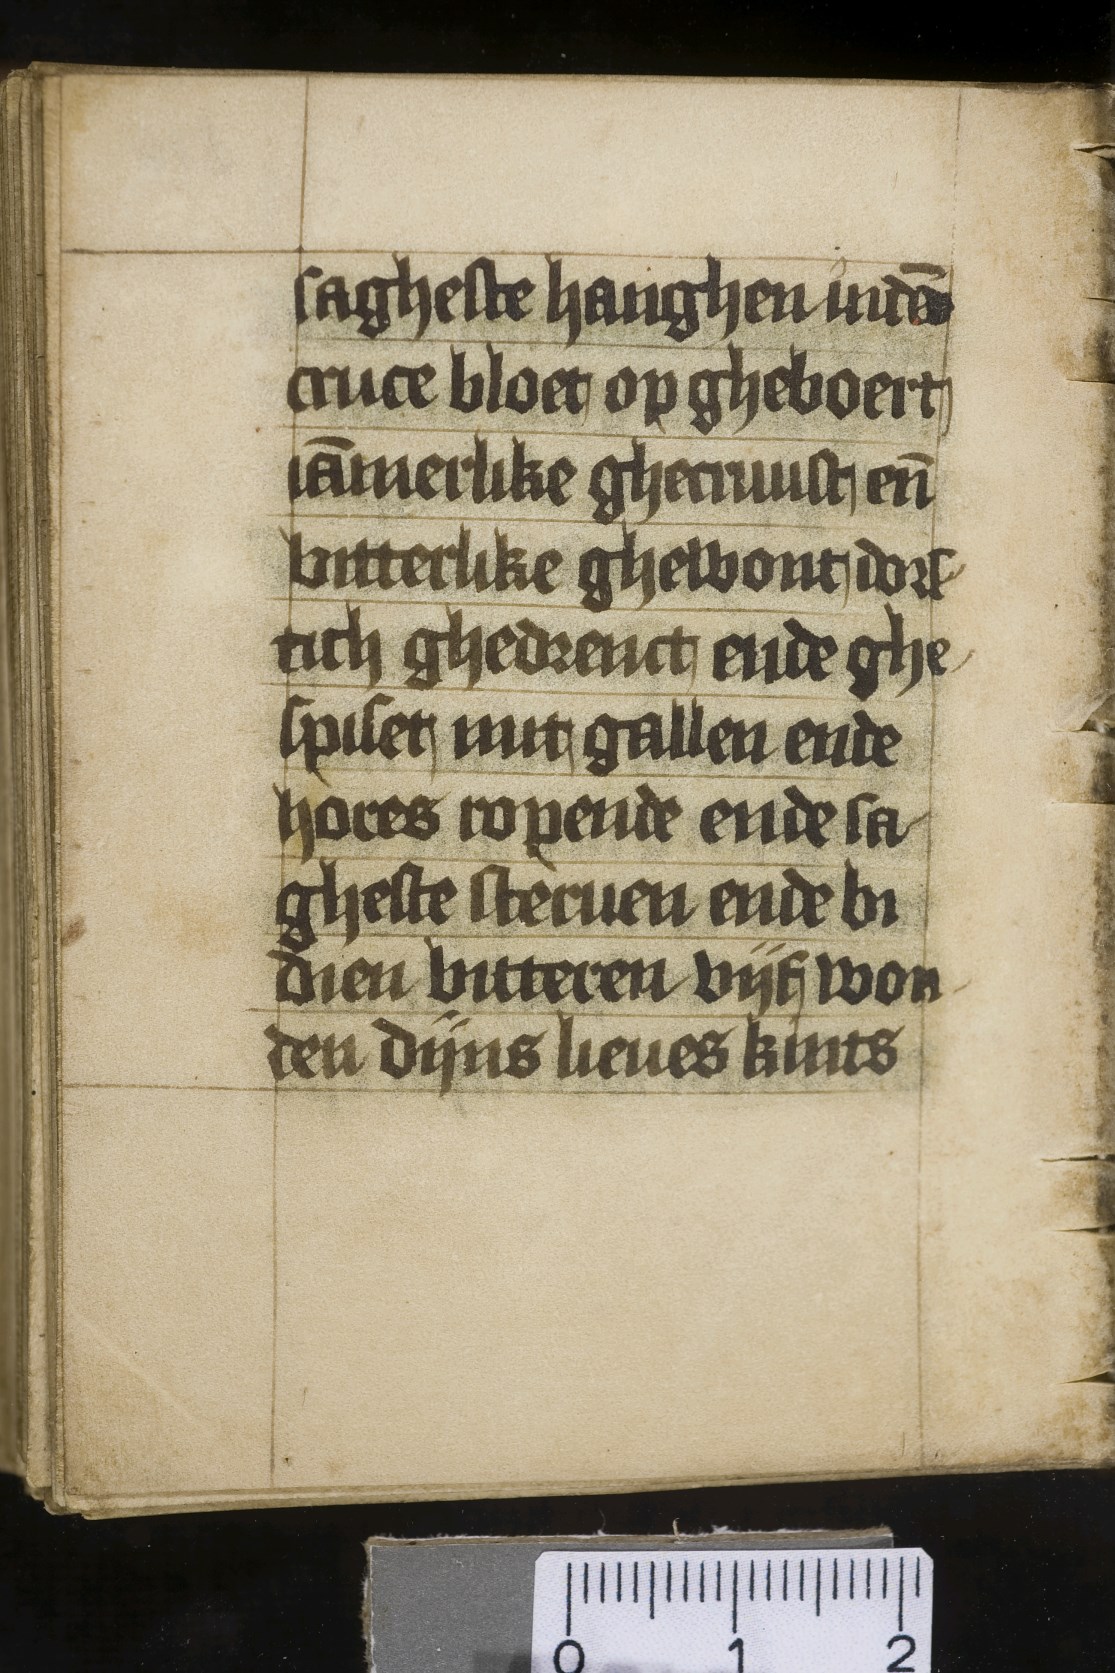 sagheste hanghen indē
cruce bloet op gheboert
iām̄erlike ghecruust en̄
bitterlike ghewont dors
tich ghedrenct ende ghe
spiset mit gallen ende
hores ropende ende sa
gheste steruen ende bi
dien bitteren vijf won
den dijns lieues kints
0 1 2